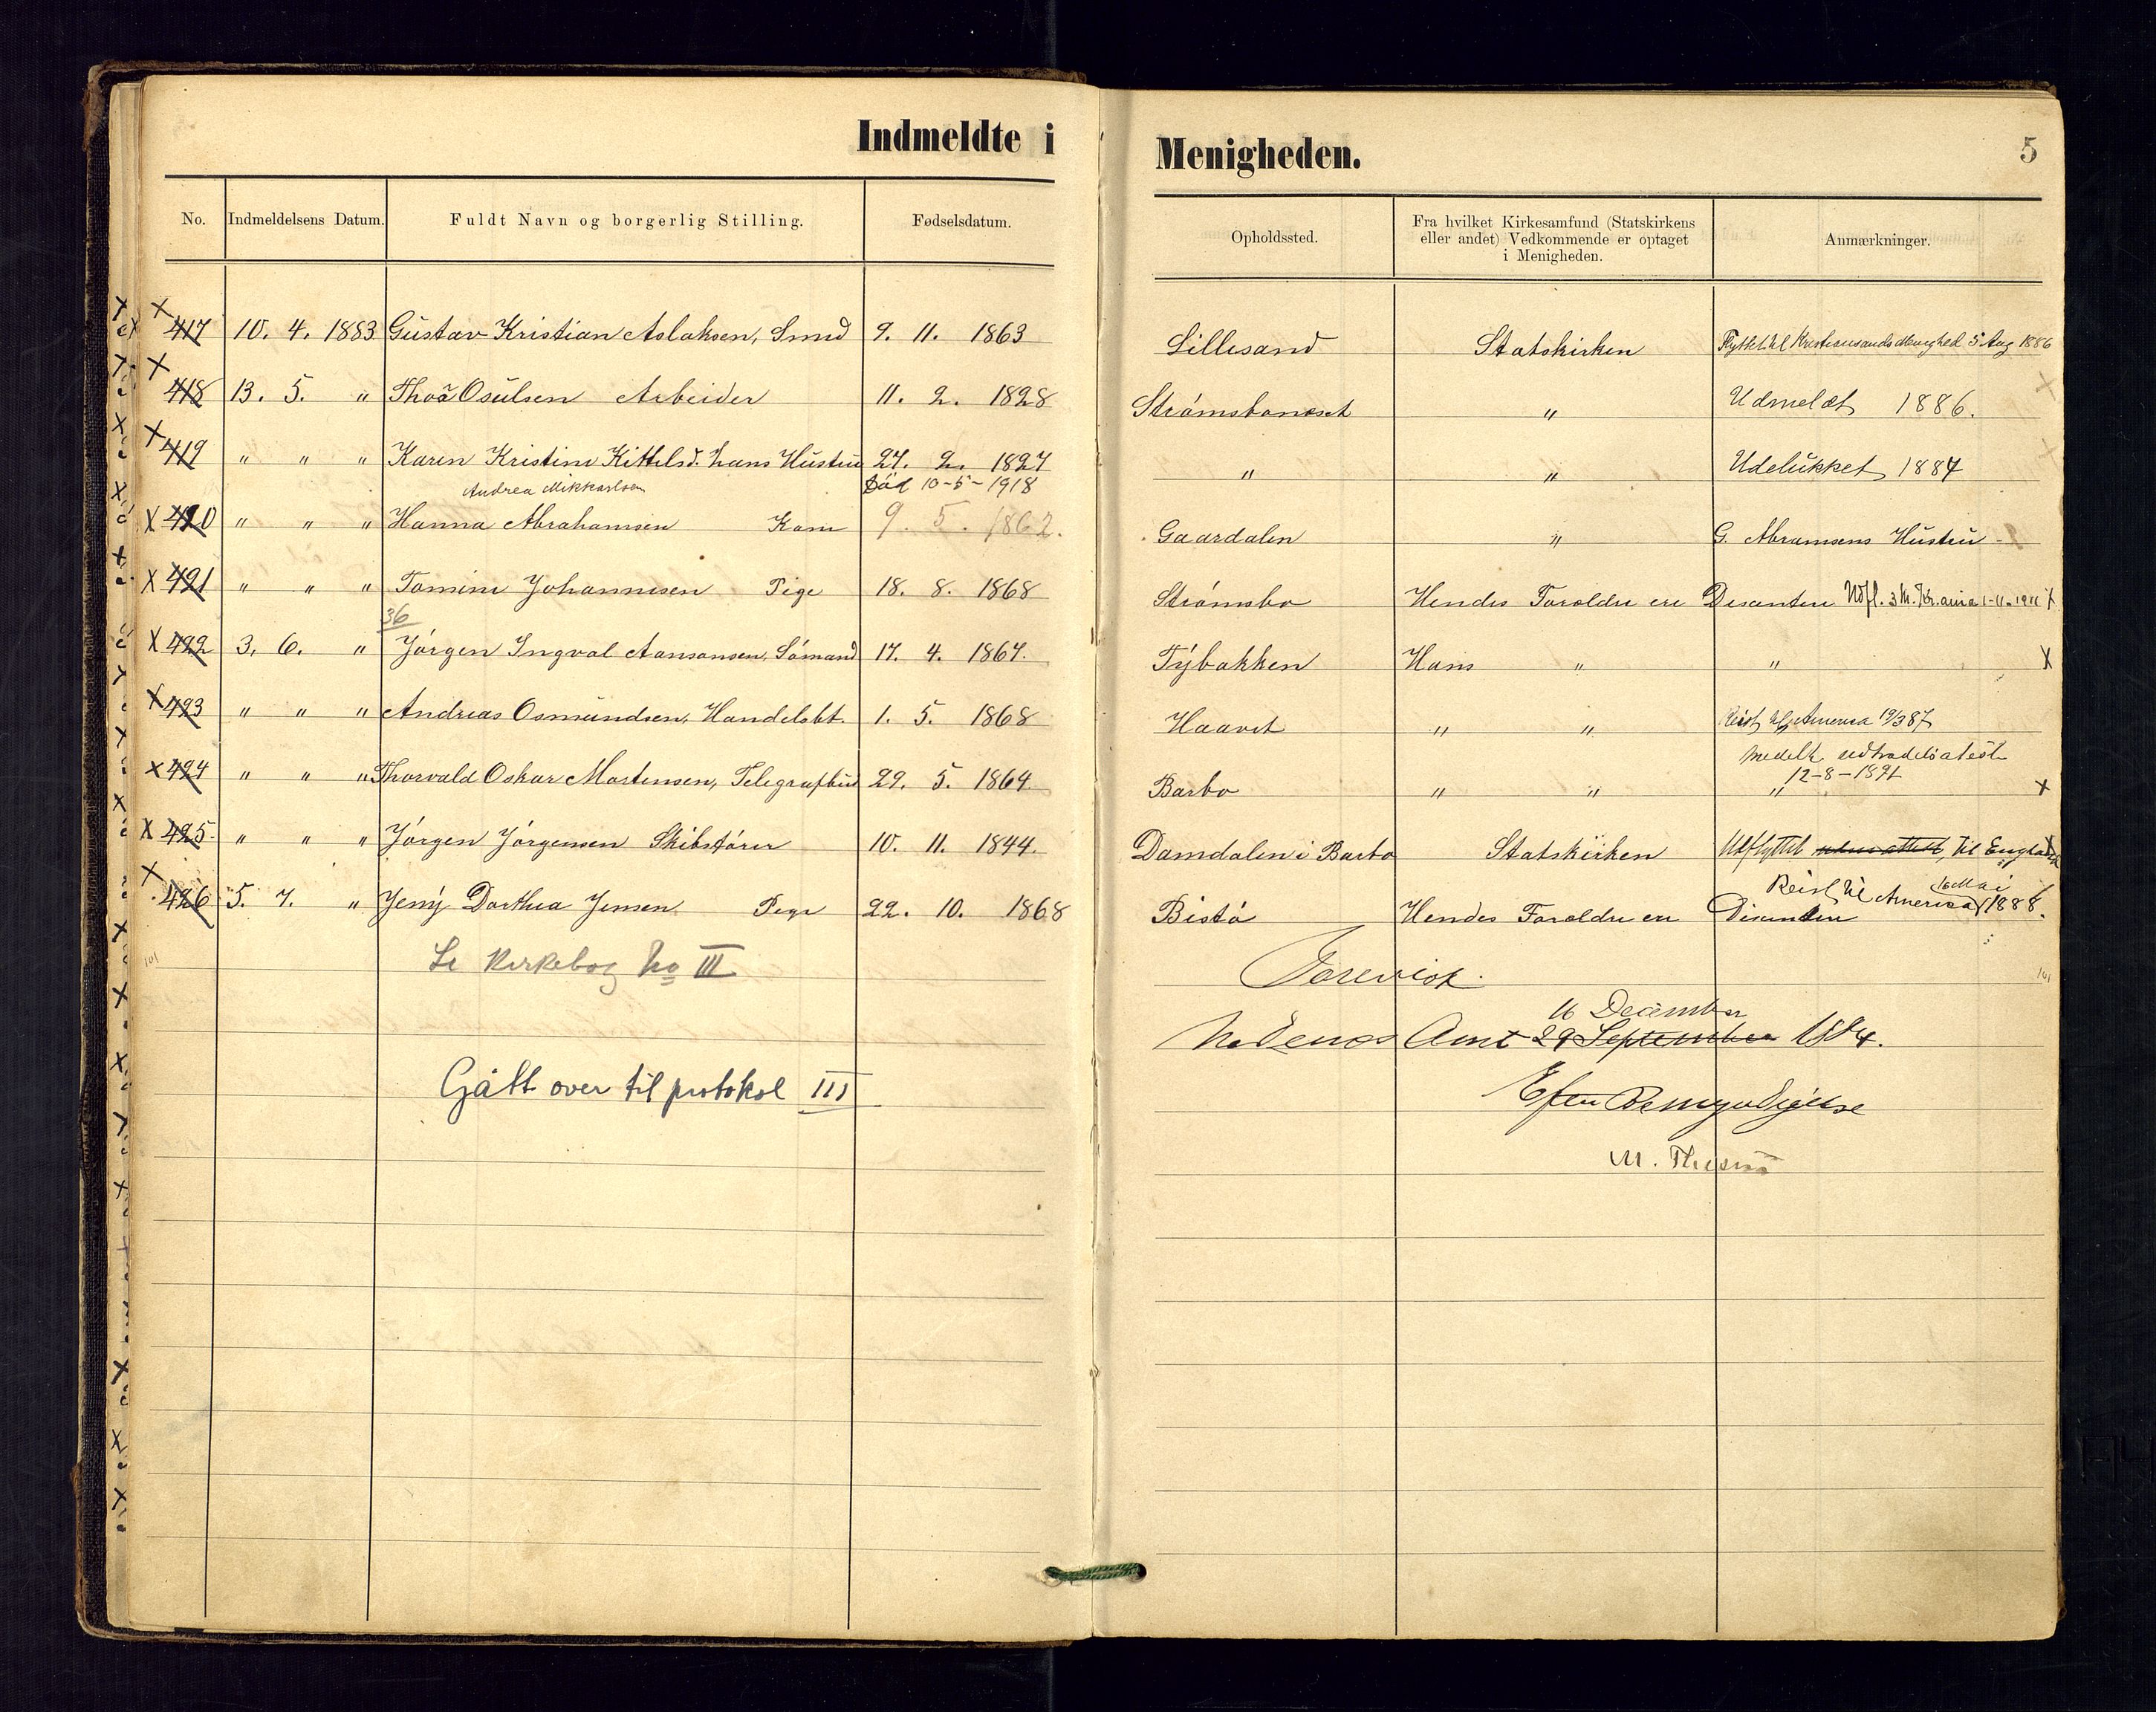 Indmeldte i Menigheden. 5
No. Indmeldelsens Datum. Fuldt Navn og borgerlig Stilling. Fødselsdatum. Opholdssted. Fra hvilket Kirkesamfund (Statskirkens eller andet) Vedkommende er optaget i Menigheden. Anmærkninger.
X 417 10. 4. 1883 Gustav Kristian Aslaksen, Smed 9. 11. 1863 Lillesand Statskirken Flyttet til Kristiansands Menighed 5 Aug 1886
X 418 13. 5. " Osulsen Arbeider 11. 2. 1828 Strømsboneset " Udmeldt 1886.
X 419 " " " Karen Kristine Kittelsd. hans Hustru 27. 2. 1827 " " Udelukket 1884
Andrea Mikkaelsen Død 10-5-1918
X 420 " " " Hanna Abrahamsen Kone 9. 5. 1862. Gaardalen " G. Abramsens Hustru
X 421 " " " Tomine Johannesen Pige 18. 8. 1868 Strømsbo Hendes Foroldre ere Disenter Udfl. 3 M. Kr.ania 1-11-1911 X
36
X 422 3. 6. " Jørgen Ingval Aanonsen, Sømand 17. 4. 1867. Tybakken Hans " " X
X 423 " " " Andreas Osmundsen, Handelsbt. 1. 5. 1868 Haavet " " Reist til America 19/3 87
X 424 " " " Thorvald Oskar Mortensen, Telegrafbud 29. 5. 1864. Barbo " " " X
meddelt udtrædelsatest 12-8-1891
X 425 " " " Jørgen Jørgensen Skibsfører 10. 11. 1844. Damdalen i Barbo Statskirken Udflyttet uden attest, til England
X 426 5. 7. " Jeny Dorthea Jensen Pige 22. 10. 1868 Bistø Hendes Foroldre ere Disenter
Reist til America 16 Mai 1888.
101 Se Kirkebog No III Forevist. 101
16 December
Nedenes Amt 29 September 1884.
Gått over til protokol III Efter Bemyndigelse
M.